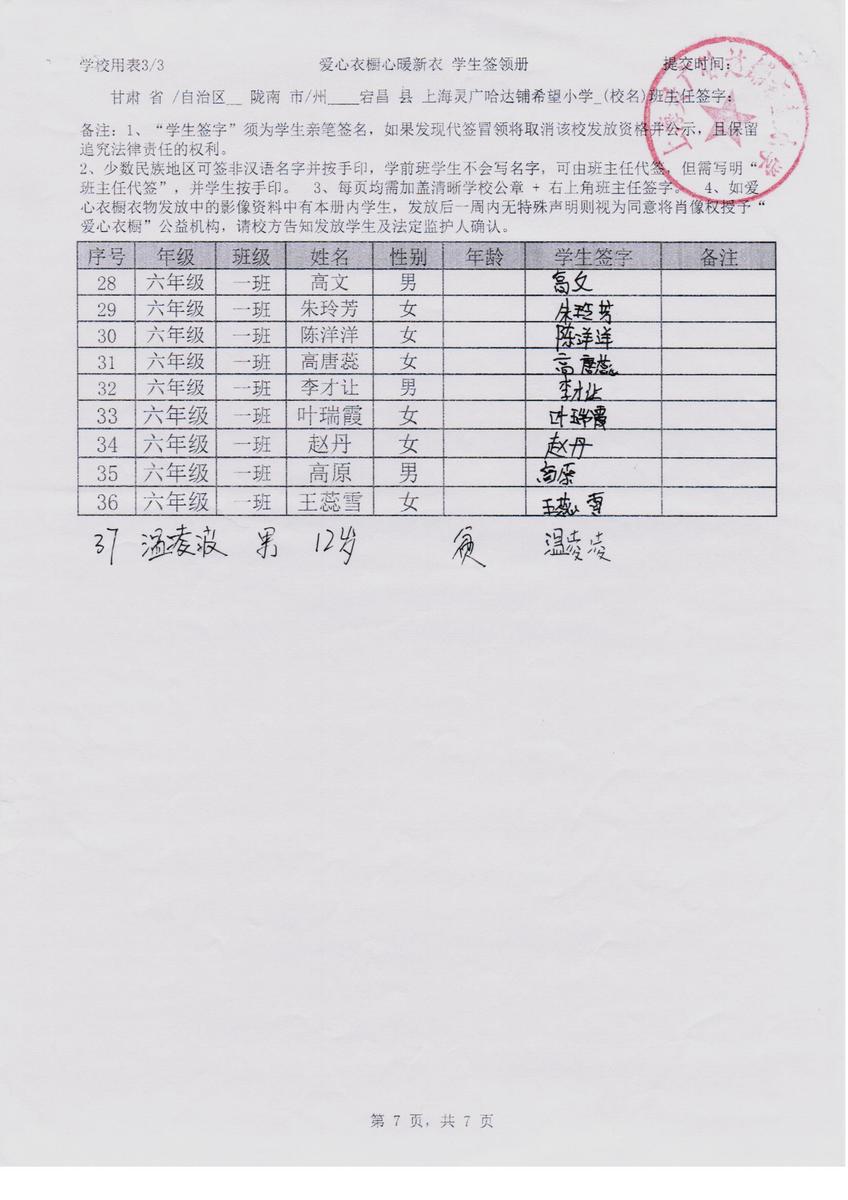 学校用表3/3 爱心衣橱心暖新衣 学生签领册 提交时间：
甘肃 省 /自治区__ 陇南 市/州____宕昌 县 上海灵广哈达铺希望小学_(校名)班主任签字：
备注：1、“学生签字”须为学生亲笔签名，如果发现代签冒领将取消该校发放资格并公示，且保留
追究法律责任的权利。
2、少数民族地区可签非汉语名字并按手印，学前班学生不会写名字，可由班主任代签，但需写明“
班主任代签”，并学生按手印。 3、每页均需加盖清晰学校公章 + 右上角班主任签字。 4、如爱
心衣橱衣物发放中的影像资料中有本册内学生，发放后一周内无特殊声明则视为同意将肖像权授予“
爱心衣橱”公益机构，请校方告知发放学生及法定监护人确认。
序号 年级 班级 姓名 性别 年龄 学生签字 备注
28 六年级 一班 高文 男 高文
29 六年级 一班 朱玲芳 女 朱玲芳
30 六年级 一班 陈洋洋 女 陈洋洋
31 六年级 一班 高唐蕊 女 高唐蕊
32 六年级 一班 李才让 男 李才让
33 六年级 一班 叶瑞霞 女 叶瑞霞
34 六年级 一班 赵丹 女 赵丹
35 六年级 一班 高原 男 高原
36 六年级 一班 王蕊雪 女 王蕊雪
37 温凌波 男 12岁 温凌凌
第 7 页，共 7 页